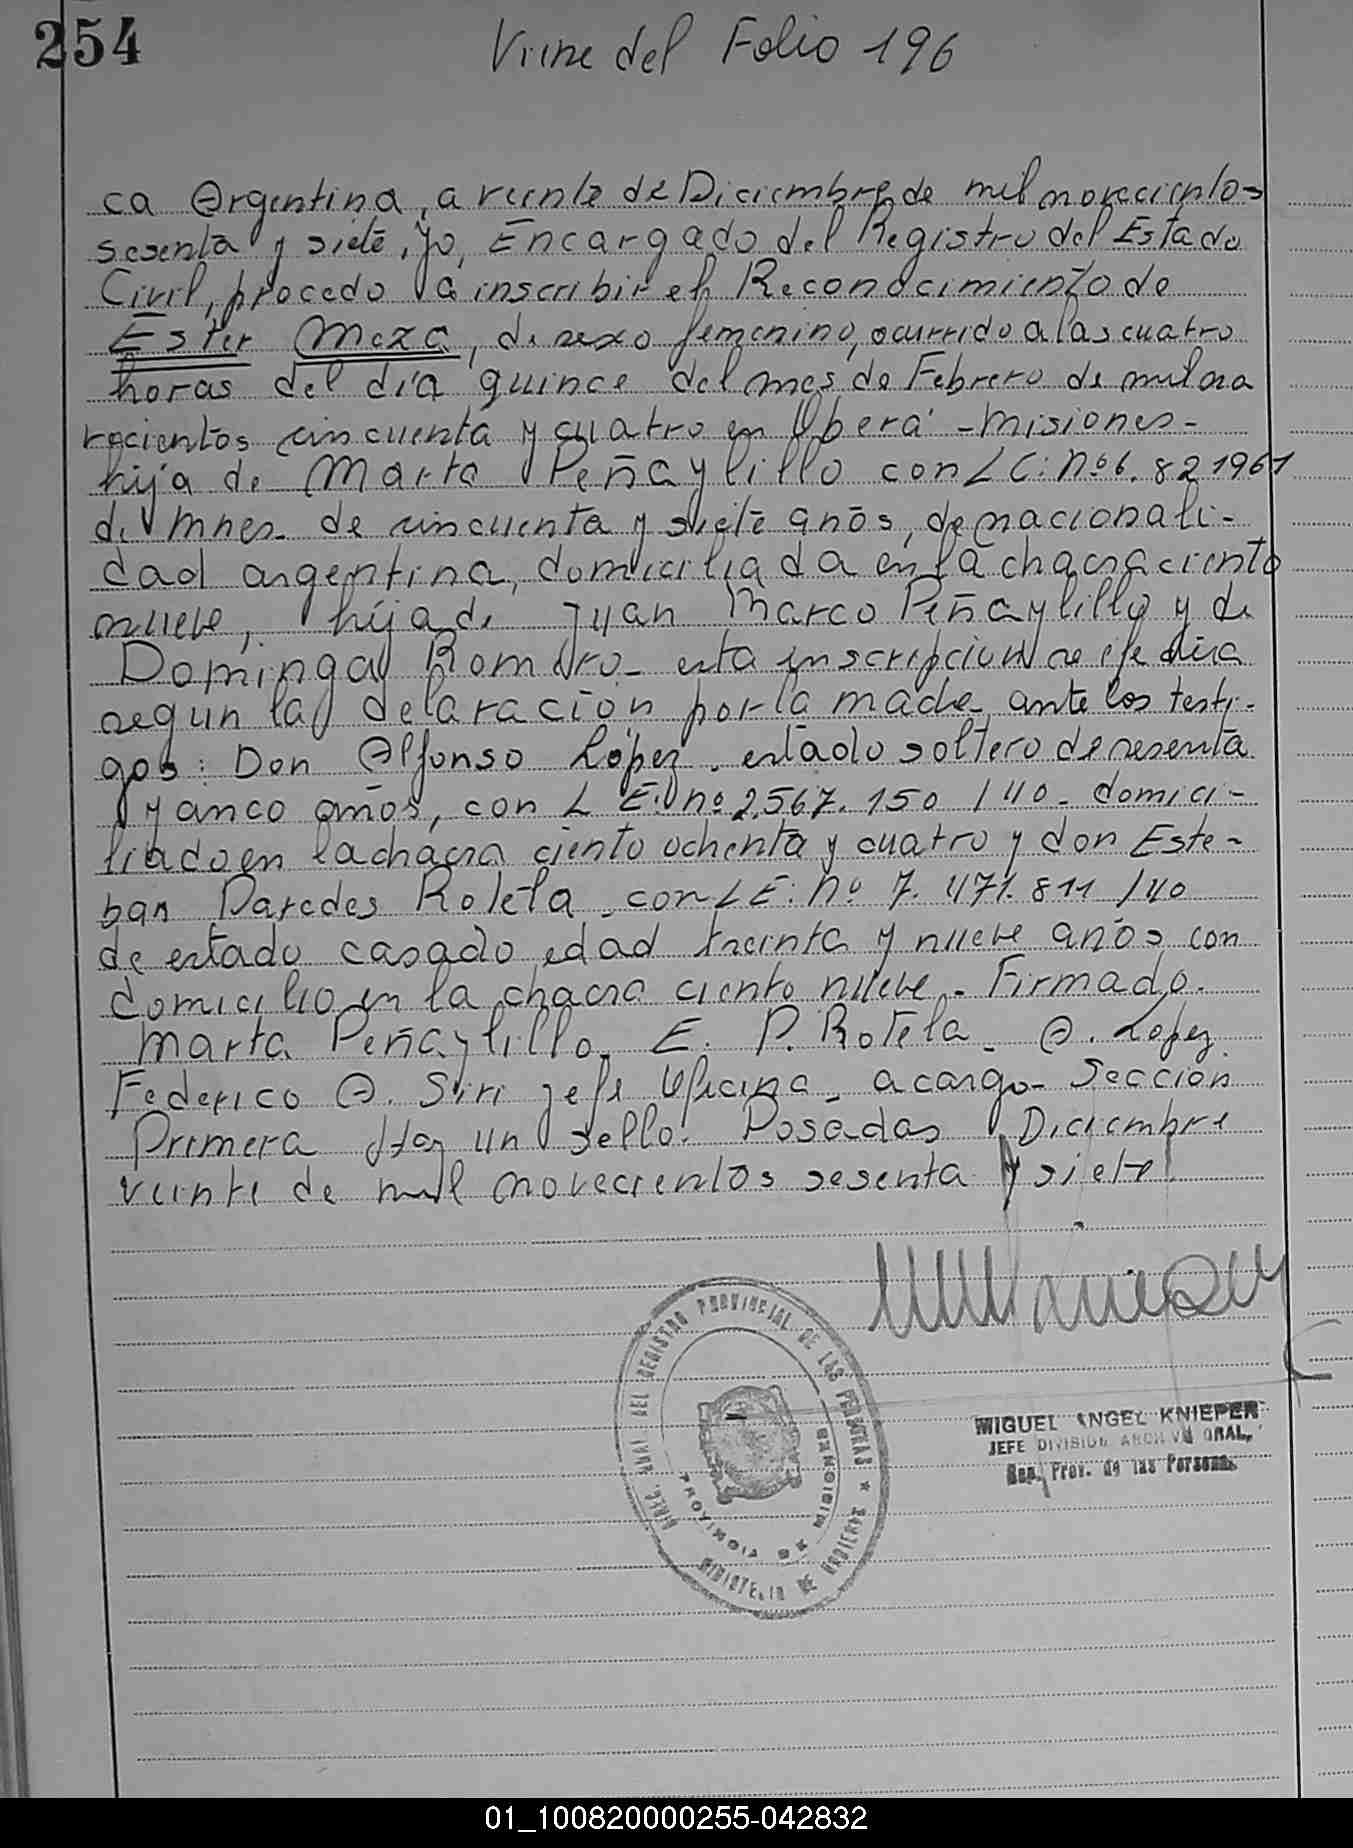 254
Viene del Folio 196
ca Argentina, a veinte de Diciembre de mil novecientos
sesenta y siete, yo, Encargado del Registro del Estado
Civil, procedo a inscribir el Reconocimiento de
Ester Meza, de sexo femenino, ocurrido a las cuatro
horas del día quince del mes de Febrero de mil no
vecientos cincuenta y cuatro en Oberá - Misiones -
hija de Marta Peñaylillo con L C: Nº 6. 82 1961
de Mnes. de cincuenta y siete años, de nacionali-
dad argentina, domiciliada en la chacra ciento
nueve, hija de Juan Marco Peñaylillo y de
Dominga Romero - esta inscripción se efectúa
según la delaración por la madre, ante los testi-
gos: Don Alfonso López, estado soltero de sesenta
y cinco años, con L E. nº 2.567.150 / 40 - domici-
liado en la chacra ciento ochenta y cuatro y don Este-
ban Paredes Rotela, con L E: nº 7. 471. 811 / 40
de estado casado, edad treinta y nueve años con
domicilio en la chacra ciento nueve. - Firmado.
Marta Peñaylillo. E. P. Rotela - A. Lopez.
Federico A. Siri jefe Oficina - a cargo - Sección
Primera Hay un sello. Posadas, Diciembre
veinte de mil novecientos sesenta y siete.
DIREC. GRAL DEL REGISTRO PROVINCIAL DE LAS PERSONAS
MINISTERIO DE HACIENDA
PROVINCIA DE MISIONES
MIGUEL ANGEL KNIEPER
JEFE DIVISION ARCHIVO GRAL.
Reg. Prov. de las Personas
01_100820000255-042832